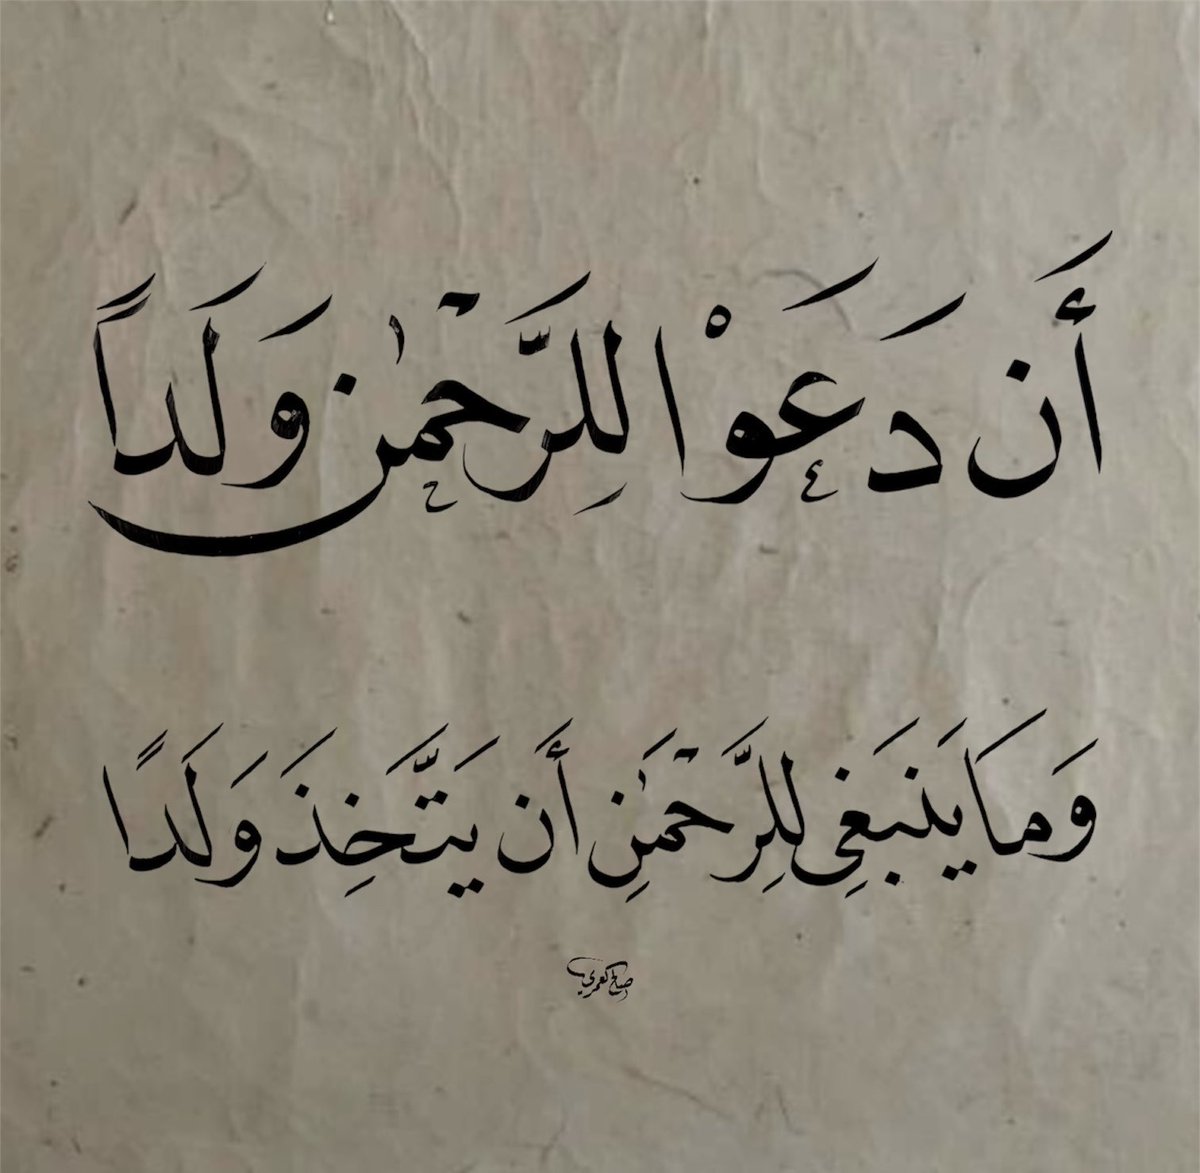 أَن دَعَوْا لِلرَّحْمٰن وَلَداً
وَمَا يَنبَغِى لِلرَّحْمَٰنِ أَن يَتَّخِذَ وَلَدًا
صالح العمري